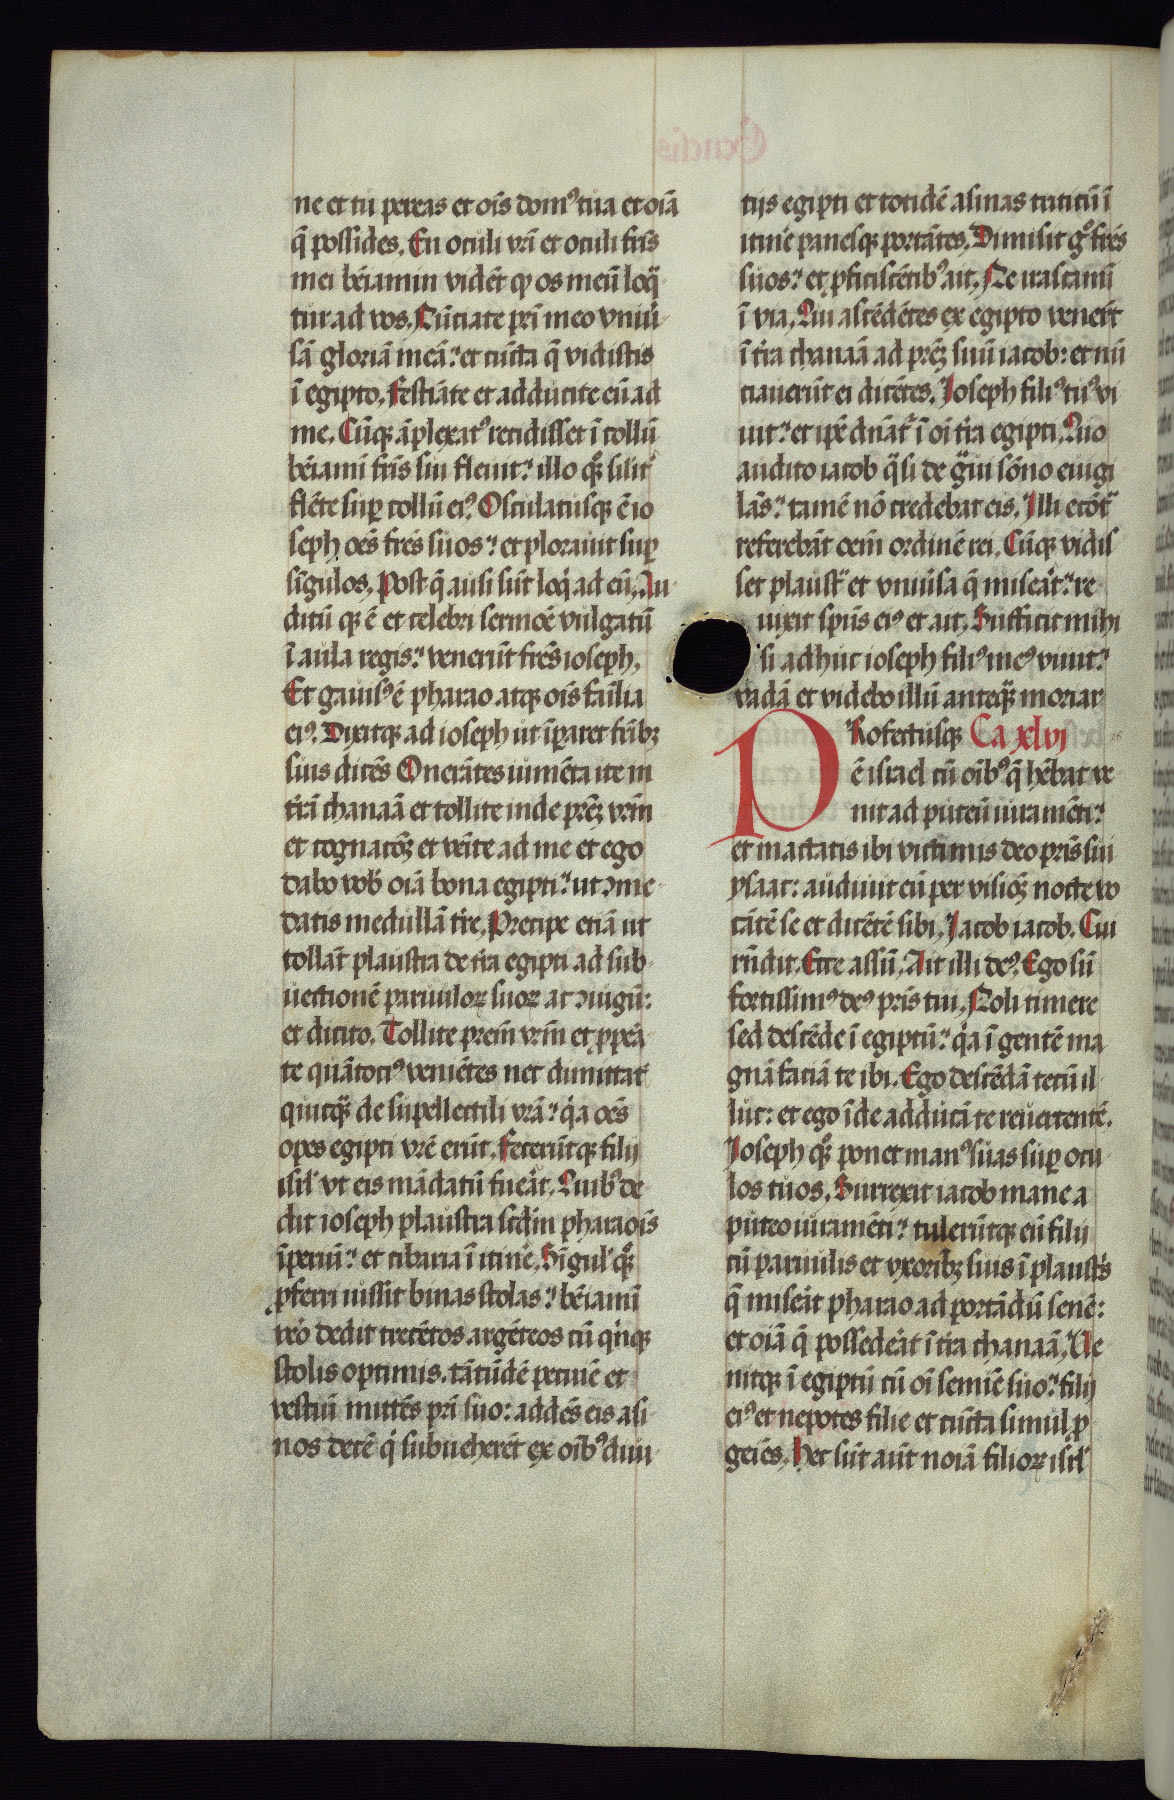 ne et tu pereas et oīs domꝰ tua et oīa
q̄ possides. En oculi vr̄i et oculi fr̄is
mei bēiamin vidēt ꝙ os meū loq̄
tur ad vos. Nūciate pr̄i meo vniuͥ
sā gloriā meā: et cūcta q̄ vidistis
ī egipto. Festīate et adducite eū ad
me. Cūqꝫ āplexatꝰ recidisset ī collū
bēiami fr̄is sui fleuit: illo qͦꝫ silit̄
flēte suꝑ collū eiꝰ Osculatusqꝫ ē io
seph oēs fr̄es suos: et plorauit suꝑ
sīgulos. Post q̄ ausi sūt loqͥ ad eū. Au
ditū qꝫ ē et celebri sermōe vulgatū
ī aula regis: venerūt fr̄es ioseph.
Et gauisꝰ ē pharao atqꝫ oīs fāilia
eiꝰ. Dixitqꝫ ad ioseph ut īparet fr̄ibꝫ
suis dicēs Onerātes iumēta ite in
tr̄ā chanaā et tollite inde prēꝫ vr̄m
et cognacōꝫ et vēite ad me et ego
dabo vobͥ oīa bona egipti: ut ꝯme
datis medullā tr̄e. Precipe etiā ut
tollāt plaustra de tr̄a egipti ad sub
uectionē paruulorꝝ suorꝝ ac ꝯiugū:
et dicito. Tollite prēm vr̄m et ꝓperā
te quātociꝰ veniētes nec dimittat̄
quicqͣꝫ de supellectili vr̄a: qͥa oēs
opes egipti vr̄e erūt. Fecerūtqꝫ filij
isrl̄ vt eis mādatū fueāt. Quibꝰ de
dit ioseph plaustra scd̄m pharaōis
īperiū: et cibaria ī itīne. Sīgulͥ qͦꝫ
ꝓferri iussit binas stolas: bēiami
vēo dedit trecētos argēteos cū qͥnqꝫ
stolis optimis. tātūdē pecuīe et
vestiū mittēs pr̄i suo: addēs eis asi
nos decē qͥ subueherēt ex oībꝰ diui
tijs egipti et totidē asinas triticū ī
itīne panesqꝫ portātes. Dimisit gͦ fr̄es
suos: et ꝓficiscētibꝰ ait. Ne irascamī
ī via. Qui ascēdētes ex egipto venerͭt
ī tr̄a chanaā ad prēꝫ suū iacob: et nū
ciauerūt ei dicētes. Ioseph filiꝰ tuꝰ vi
uit: et ipē dn̄at̄ ī oī tr̄a egipti. Quo
audito iacob qͣsi de gͣui sōno euigi
lās: tamē nō credebat eis. Illi ecōtͣ
referebāt oēm ordinē rei. Cūqꝫ vidis
set plaustͣ et vniuͥsa q̄ miseāt: re
uixit spūs eiꝰ et ait. Sufficit mihi
si adhuc ioseph filiꝰ meꝰ viuit:
vadā et videbo illū anteqͣꝫ moriar
PRofectusqꝫ Ca xlvj
ē israel cū oībꝰ q̄ hēbat ve
nit ad puteū iuramēti:
et mactatis ibi victimis deo pr̄is sui
ysaac: audiuit eū per visiōꝫ nocte vo
cātē se et dicētē sibi. Iacob iacob. Cui
rn̄dit. Ecce assū. Ait illi deꝰ. Ego sū
fortissimꝰ deꝰ pr̄is tui. Noli timere
sed descēde ī egiptū: qͥa ī gentē ma
gnā faciā te ibi. Ego descēdā tecū il
luc: et ego īde adducā te reuertentē.
Ioseph qͦꝫ ponet manꝰ suas suꝑ ocu
los tuos. Surrexit iacob mane a
puteo iuramēti: tulerūtqꝫ eū filij
cū paruulis et vxoribꝫ suis ī plaustͥs
q̄ miseāt pharao ad portādū senē:
et oīa q̄ possedeāt ī tr̄a chanaā. Ve
nitqꝫ ī egiptū cū oī semīe suo: filij
eiꝰ et nepotes filie et cūcta simul ꝓ
geīes. Hec sūt aūt noīa filiorꝝ isrl̄